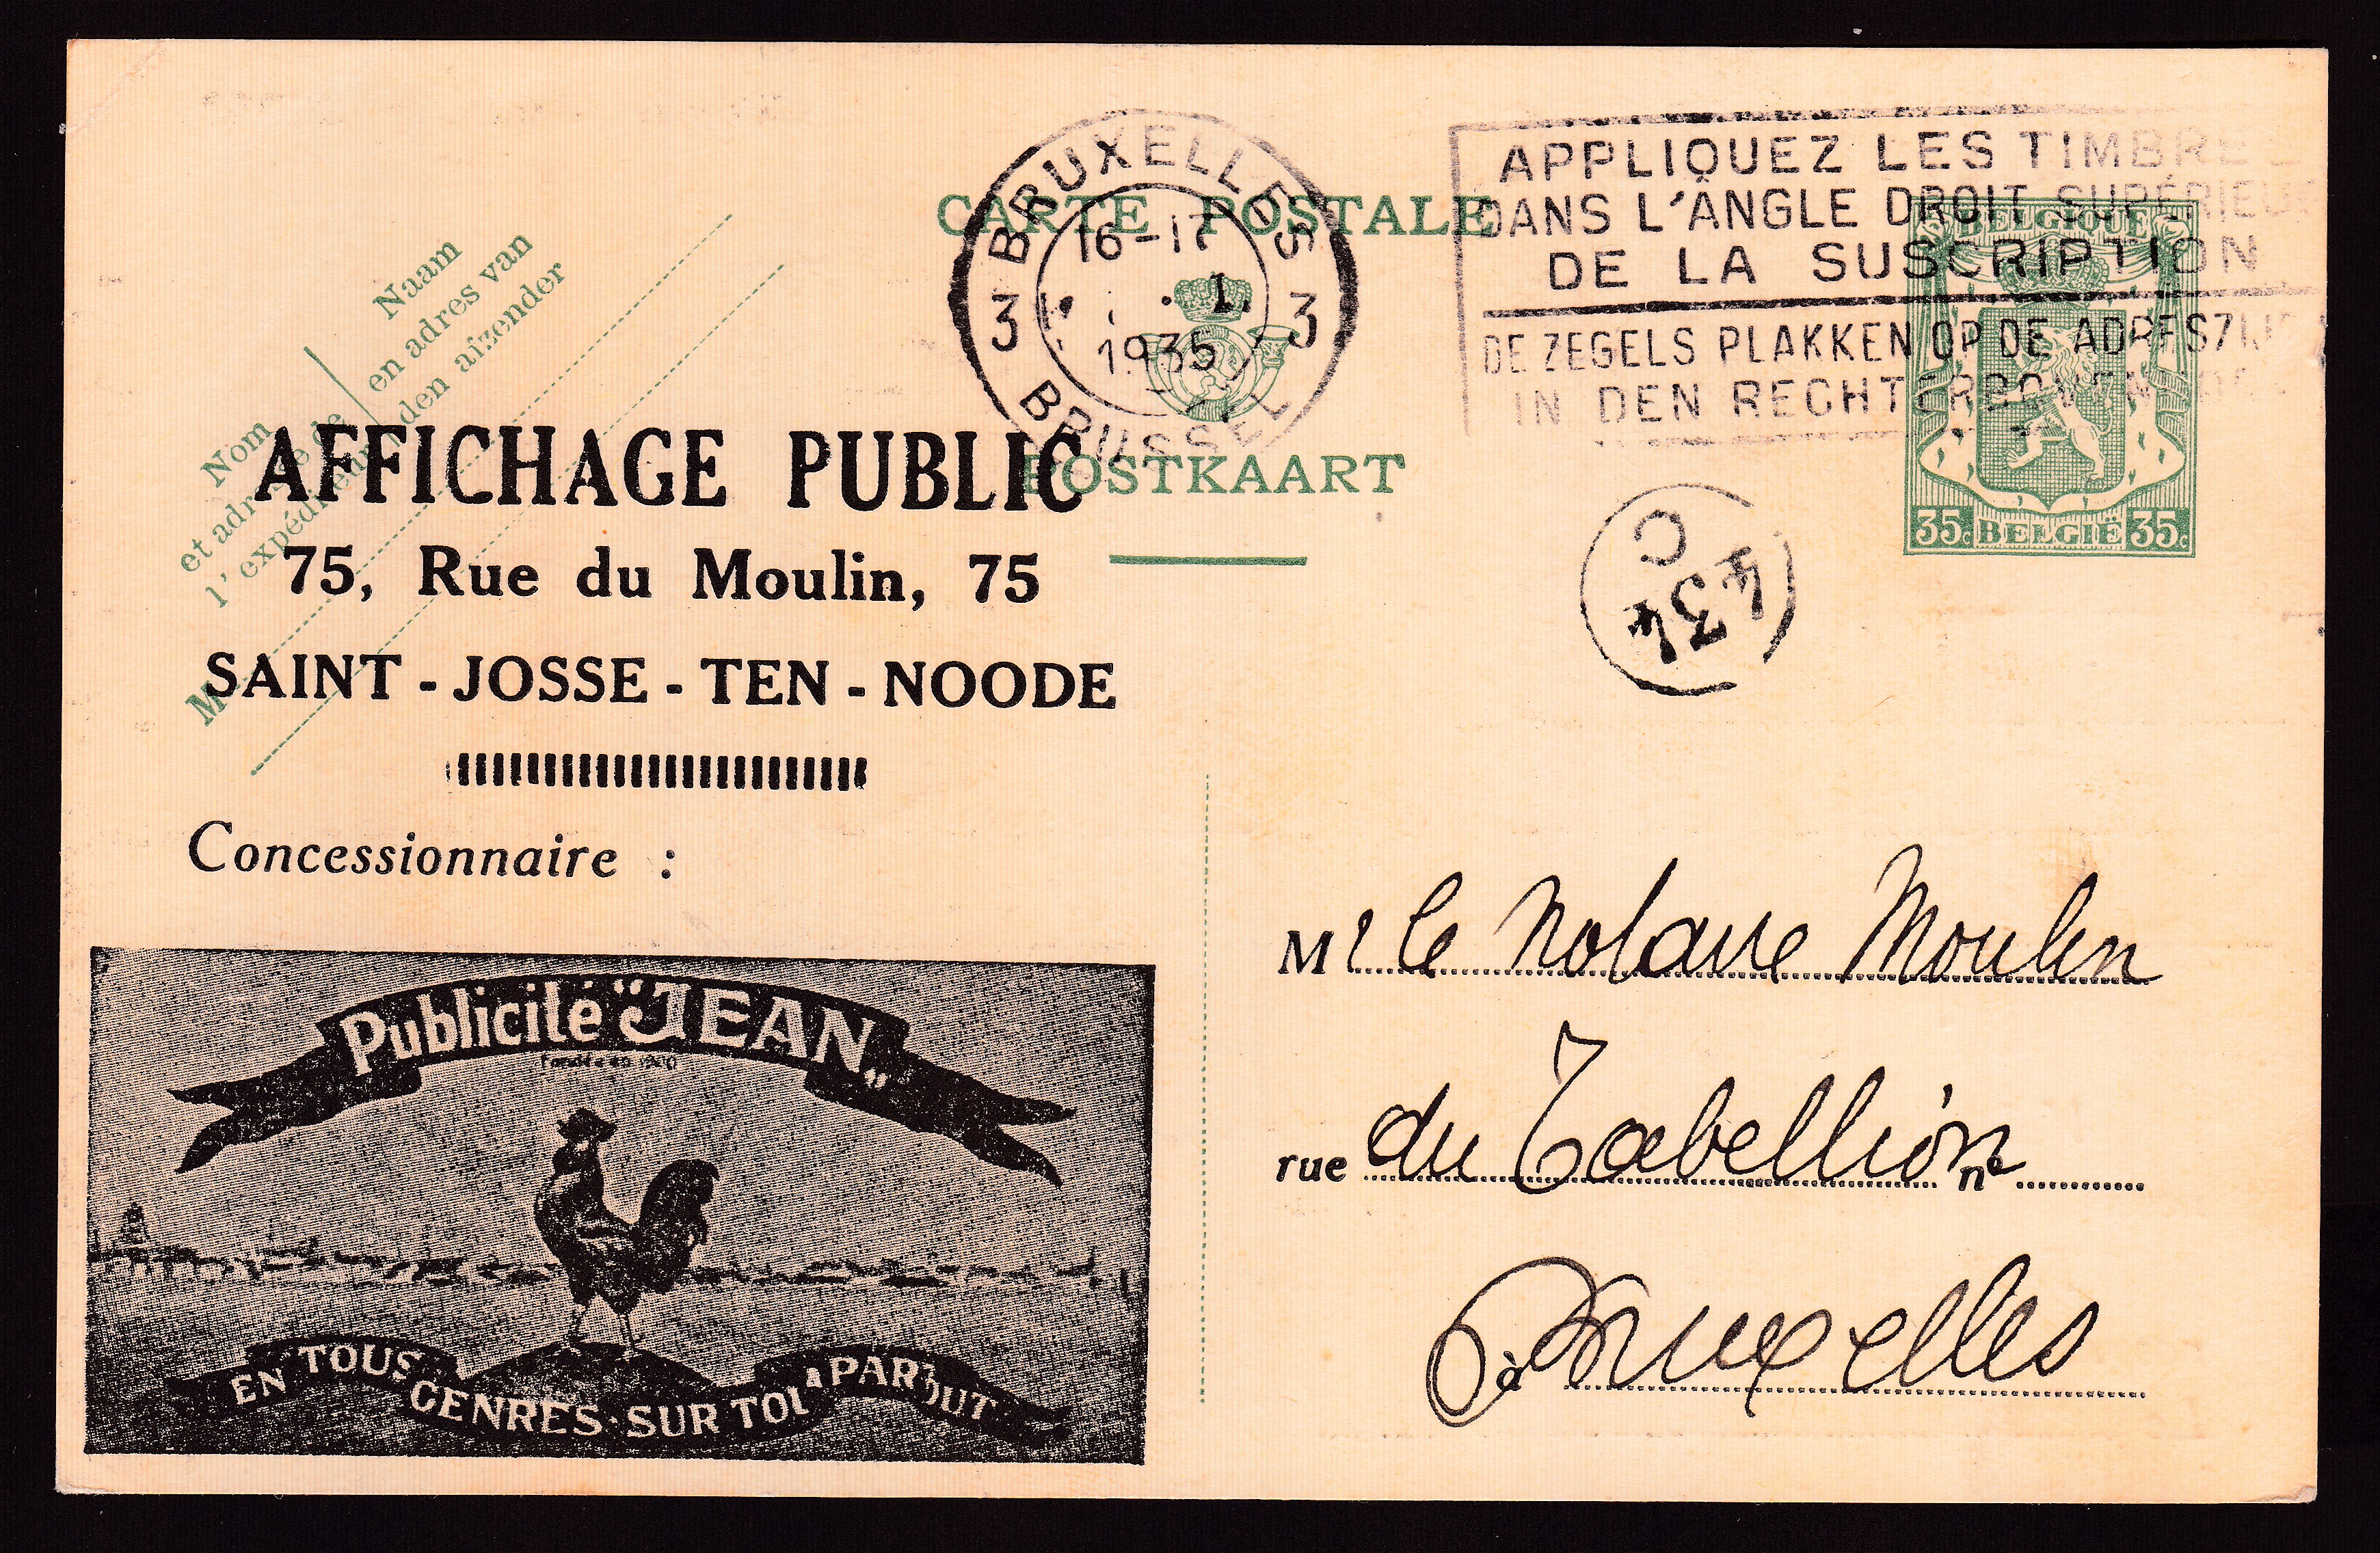 BRUXELLES
16-17
3 1 3
1935
BRUSSEL
APPLIQUEZ LES TIMBRES
DANS L'ANGLE DROIT SUPÉRIEUR
DE LA SUSCRIPTION
DE ZEGELS PLAKKEN OP DE ADRESZIJDE
IN DEN RECHTERBOVEN
CARTE POSTALE
POSTKAART
BELGIQUE
35c BELGIË 35c
Naam
en adres van
den afzender
Nom
et adresse de
l'expéditeur
M
AFFICHAGE PUBLIC
75, Rue du Moulin, 75
SAINT-JOSSE-TEN-NOODE
Concessionnaire :
434
C
Publicité "JEAN"
EN TOUS GENRES·SUR TOUT PARTOUT
Mr le Notaire Moulin
rue du Tabellion no
à Bruxelles